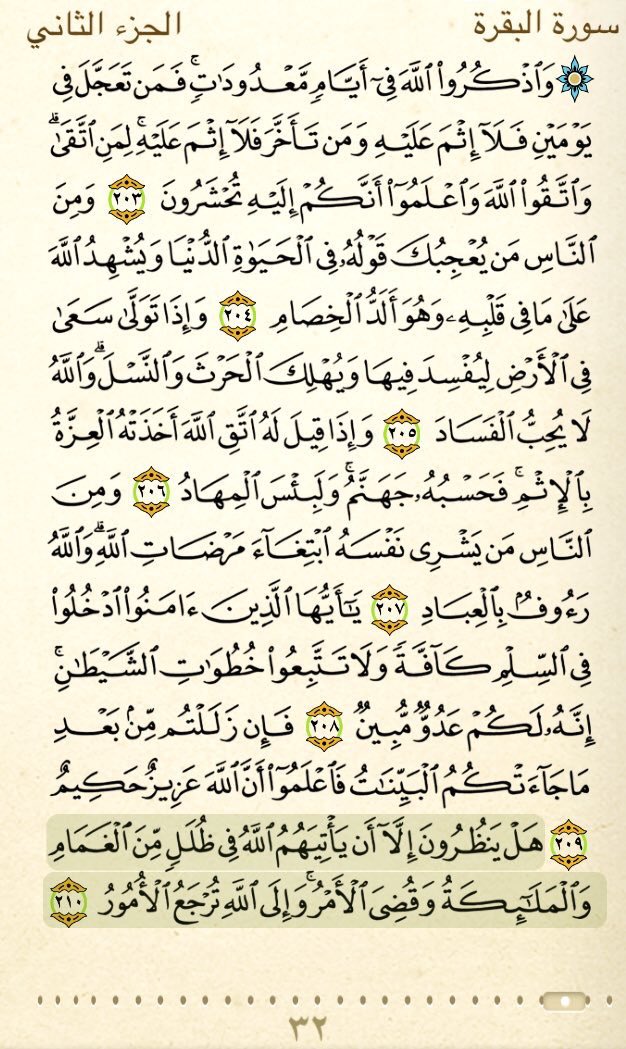 سورة البقرة الجزء الثاني
وَٱذْكُرُوا۟ ٱللَّهَ فِىٓ أَيَّامٍ مَّعْدُودَٰتٍ ۚ فَمَن تَعَجَّلَ فِى
يَوْمَيْنِ فَلَآ إِثْمَ عَلَيْهِ وَمَن تَأَخَّرَ فَلَآ إِثْمَ عَلَيْهِ ۚ لِمَنِ ٱتَّقَىٰ ۗ
وَٱتَّقُوا۟ ٱللَّهَ وَٱعْلَمُوٓا۟ أَنَّكُمْ إِلَيْهِ تُحْشَرُونَ ٢٠٣ وَمِنَ
ٱلنَّاسِ مَن يُعْجِبُكَ قَوْلُهُۥ فِى ٱلْحَيَوٰةِ ٱلدُّنْيَا وَيُشْهِدُ ٱللَّهَ
عَلَىٰ مَا فِى قَلْبِهِۦ وَهُوَ أَلَدُّ ٱلْخِصَامِ ٢٠٤ وَإِذَا تَوَلَّىٰ سَعَىٰ
فِى ٱلْأَرْضِ لِيُفْسِدَ فِيهَا وَيُهْلِكَ ٱلْحَرْثَ وَٱلنَّسْلَ ۗ وَٱللَّهُ
لَا يُحِبُّ ٱلْفَسَادَ ٢٠٥ وَإِذَا قِيلَ لَهُ ٱتَّقِ ٱللَّهَ أَخَذَتْهُ ٱلْعِزَّةُ
بِٱلْإِثْمِ ۚ فَحَسْبُهُۥ جَهَنَّمُ ۚ وَلَبِئْسَ ٱلْمِهَادُ ٢٠٦ وَمِنَ
ٱلنَّاسِ مَن يَشْرِى نَفْسَهُ ٱبْتِغَآءَ مَرْضَاتِ ٱللَّهِ ۗ وَٱللَّهُ
رَءُوفٌۢ بِٱلْعِبَادِ ٢٠٧ يَٰٓأَيُّهَا ٱلَّذِينَ ءَامَنُوا۟ ٱدْخُلُوا۟
فِى ٱلسِّلْمِ كَآفَّةً وَلَا تَتَّبِعُوا۟ خُطُوَٰتِ ٱلشَّيْطَٰنِ ۚ
إِنَّهُۥ لَكُمْ عَدُوٌّ مُّبِينٌ ٢٠٨ فَإِن زَلَلْتُم مِّنۢ بَعْدِ
مَا جَآءَتْكُمُ ٱلْبَيِّنَٰتُ فَٱعْلَمُوٓا۟ أَنَّ ٱللَّهَ عَزِيزٌ حَكِيمٌ
٢٠٩ هَلْ يَنظُرُونَ إِلَّآ أَن يَأْتِيَهُمُ ٱللَّهُ فِى ظُلَلٍ مِّنَ ٱلْغَمَامِ
وَٱلْمَلَٰٓئِكَةُ وَقُضِىَ ٱلْأَمْرُ ۚ وَإِلَى ٱللَّهِ تُرْجَعُ ٱلْأُمُورُ ٢١٠
٣٢